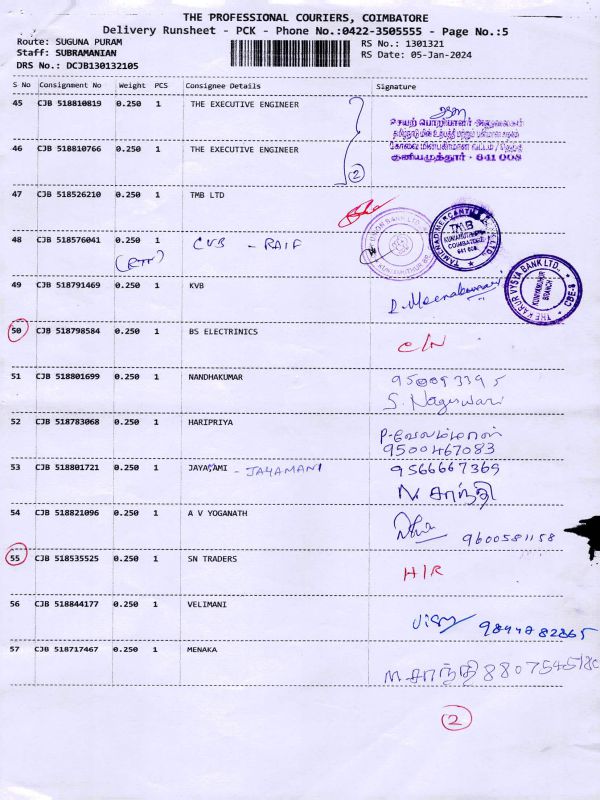 THE PROFESSIONAL COURIERS, COIMBATORE
Delivery Runsheet - PCK - Phone No.:0422-3505555 - Page No.:5
Route: SUGUNA PURAM RS No.: 1301321
Staff: SUBRAMANIAN RS Date: 05-Jan-2024
DRS No.: DCJB130132105
S No Consignment No Weight PCS Consignee Details Signature
45 CJB 518810819 0.250 1 THE EXECUTIVE ENGINEER
செயற் பொறியாளர் அலுவலகம்
46 CJB 518810766 0.250 1 THE EXECUTIVE ENGINEER
குனியமுத்தூர் - 641 008
2
47 CJB 518526210 0.250 1 TMB LTD
TAMILNAD MERCANTILE BANK LTD.
TMB
COIMBATORE
641 008
48 CJB 518576041 0.250 1 CUB - RAIF
49 CJB 518791469 0.250 1 KVB R. Meenakumari
THE KARUR VYSYA BANK LTD. CBE-8
KUNIAMUTHUR
BRANCH
50 CJB 518798584 0.250 1 BS ELECTRINICS C/N
51 CJB 518801699 0.250 1 NANDHAKUMAR 950093395
S. Nageswari
52 CJB 518783068 0.250 1 HARIPRIYA
9500467083
53 CJB 518801721 0.250 1 JAYAGAMI - JAYAMANI 9566667369
N சாந்தி
54 CJB 518821096 0.250 1 A V YOGANATH 9600581158
55 CJB 518535525 0.250 1 SN TRADERS H/R
56 CJB 518844177 0.250 1 VELIMANI 9894782865
57 CJB 518717467 0.250 1 MENAKA
N சாந்தி
2